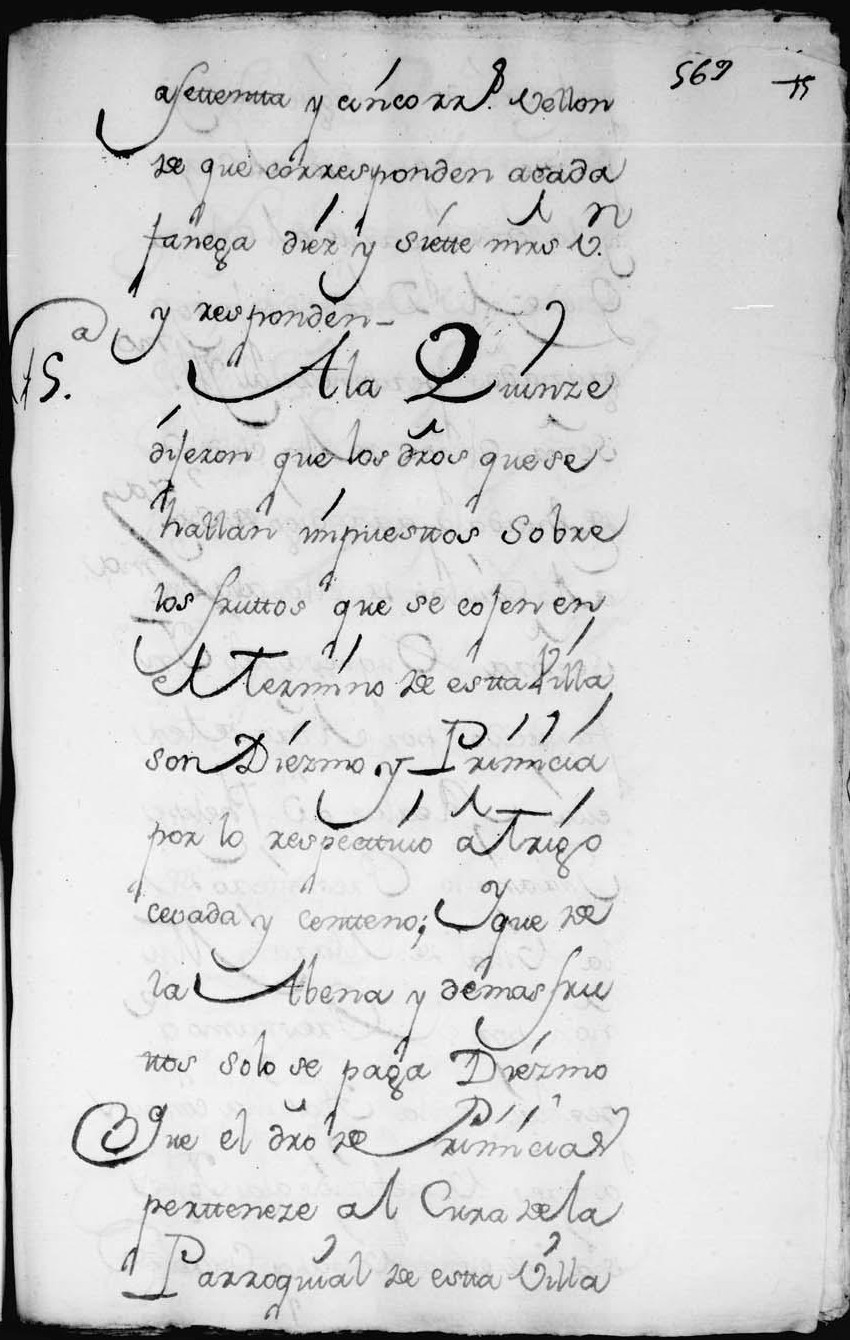 569 15
a settentta y cinco rr.s Vellon
de que corresponden acada
fanega diez y siette mrs V.n
y responden-
15.a
A la Quinze
dijeron que los dros que se
hallan impuesttos Sobre
los fruttos que se cojen en
el Termino de estta Villa
son Diezmo y Primicia
por lo respecttivo a Trigo
cevada y centteno; y que de
la Abena y demas fru
ttos solo se paga Diezmo
Que el dro de Primicia
pertteneze al Cura de la
Parroquial de estta Villa